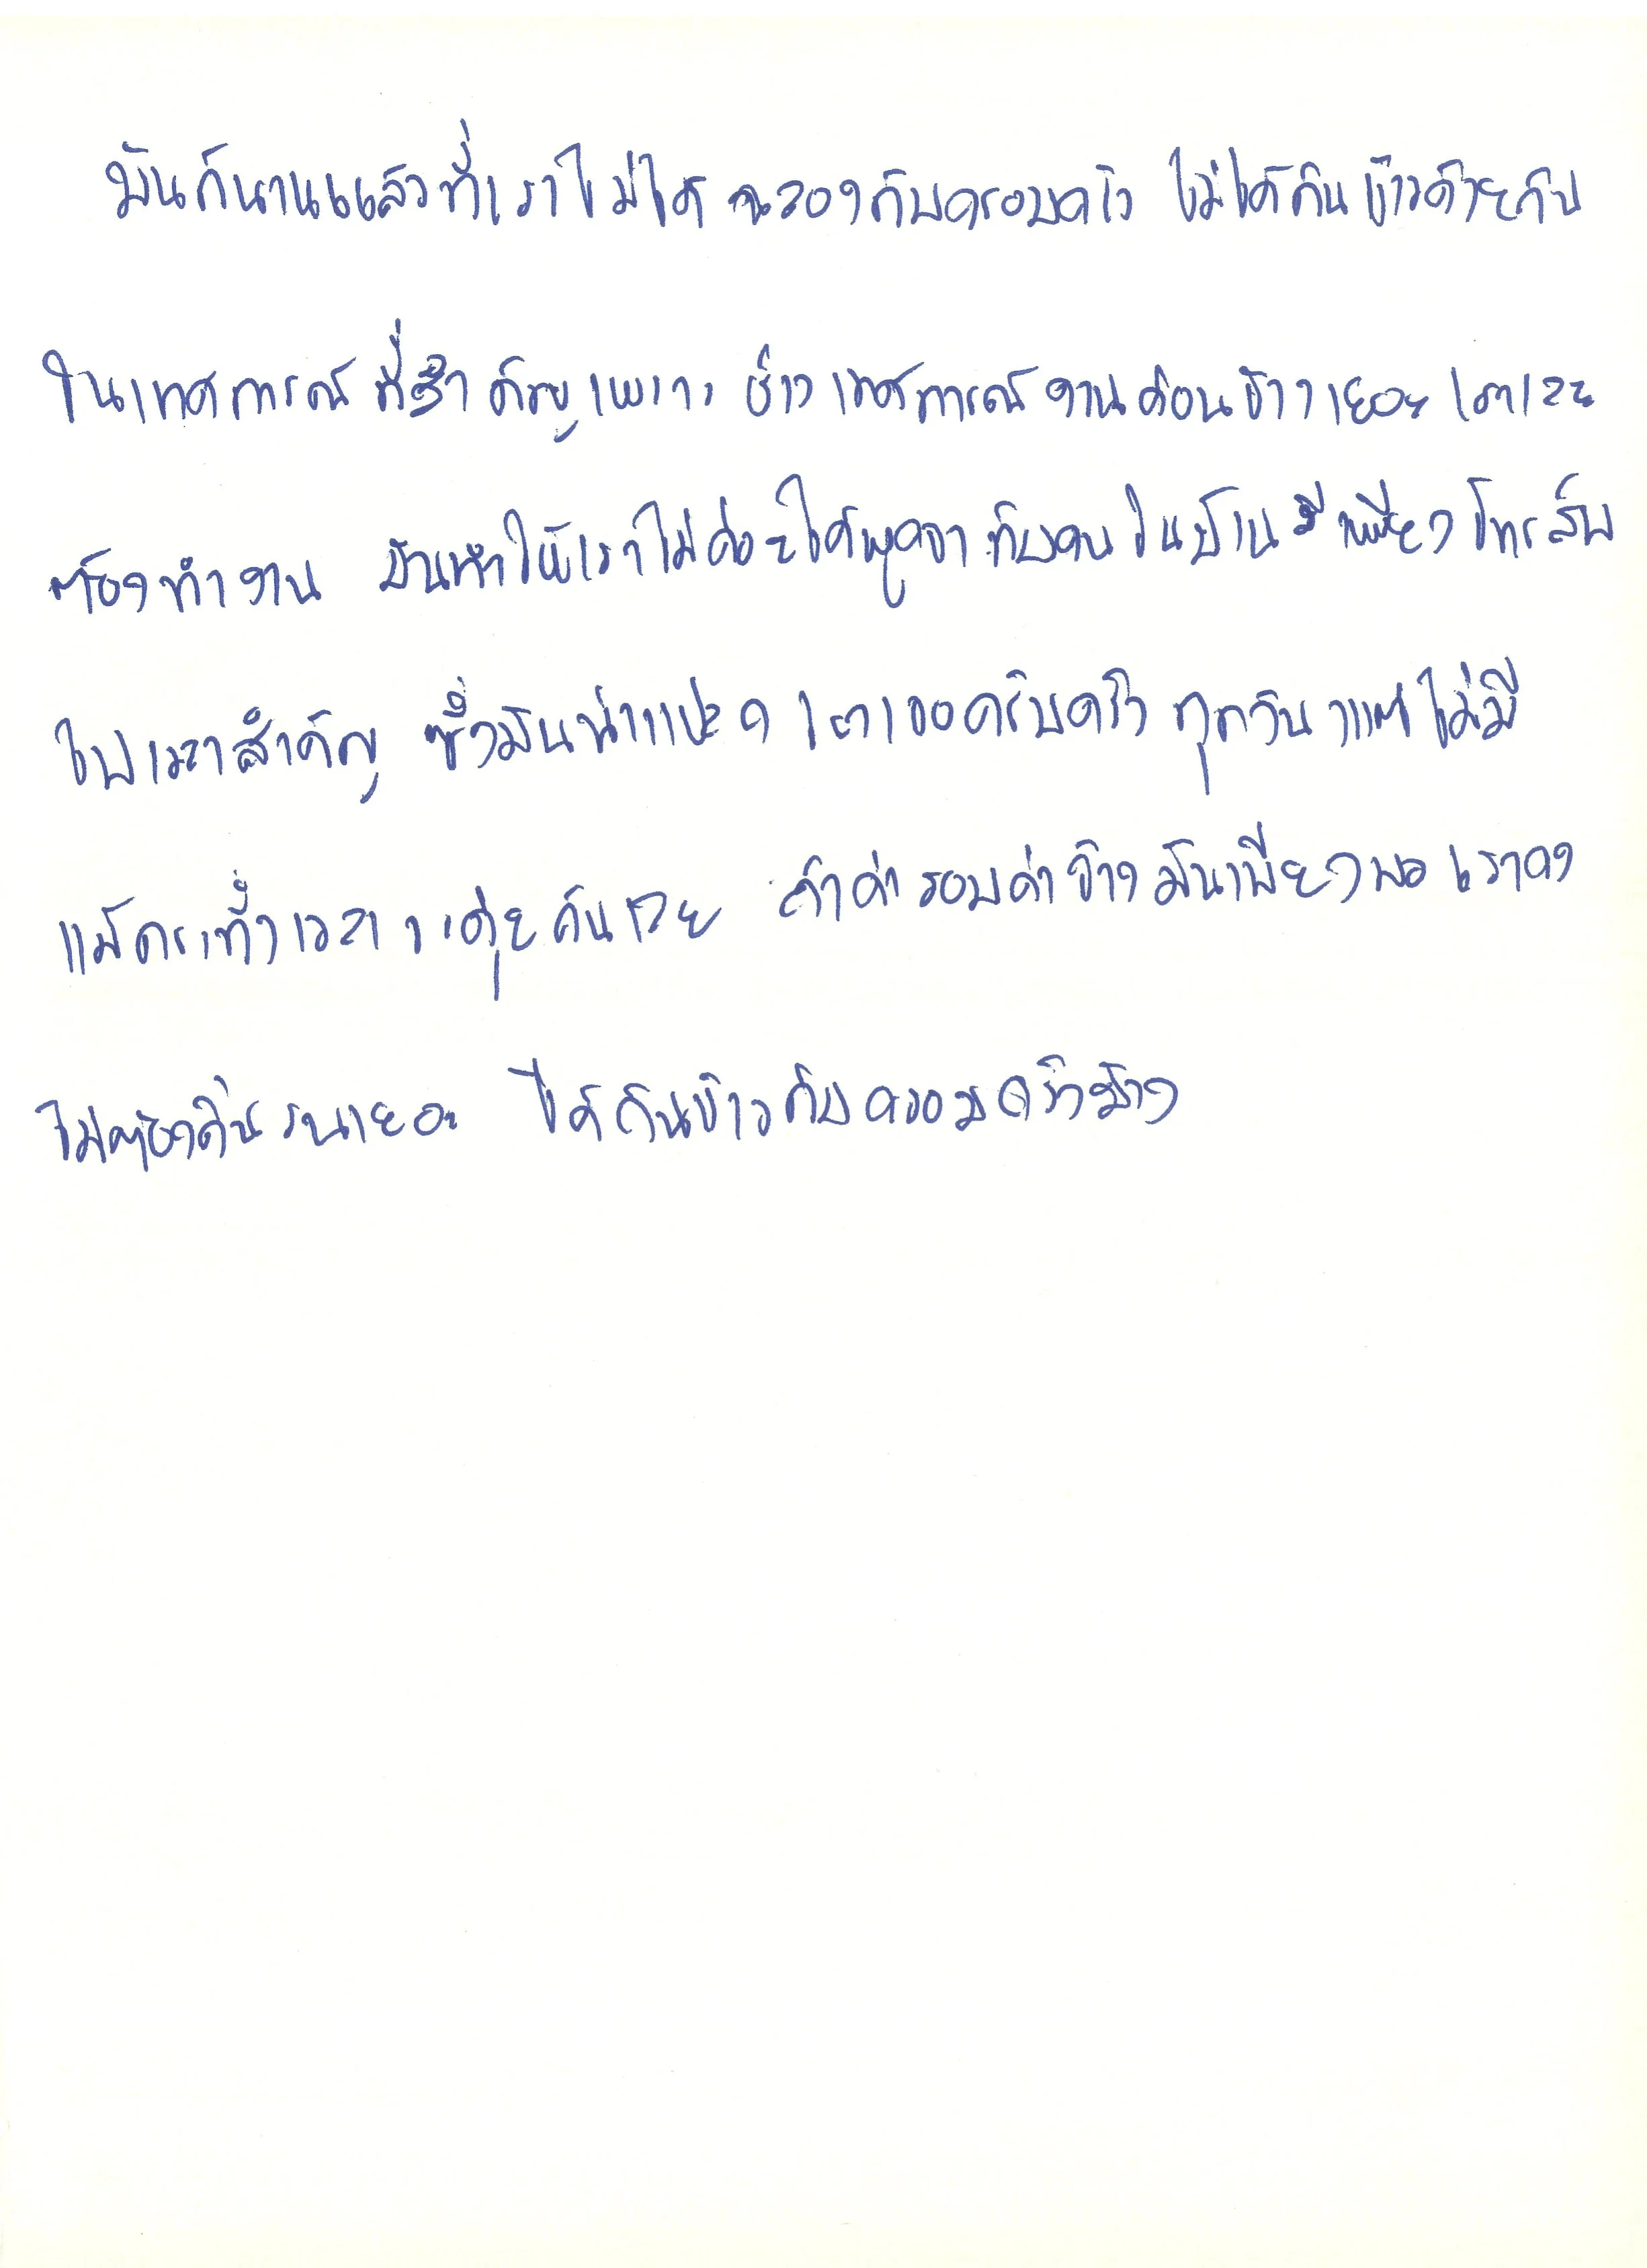 มันก็นานแล้วที่เราไม่ได้ ฉลองกับครอบครัว ไม่ได้กินข้าวด้วยกัน
ในเทศการณ์ ที่สำคัญ เพราะ ช่วงเทศการณ์ งานค่อนข้างเยอะ เราเลย
ต้องทำงาน มันทำให้เราไม่ค่อยได้พูดจา กับคนในบ้าน มีเพียง โทรสัพ
ในเวลาสำคัญ ซึ่งมันน่าแปลก เราเจอครอบครัว ทุกวัน แต่ไม่มี
แม้กระทั่งเวลาจะคุยกันเลย ถ้าค่าแรงค่าจ้าง มันเพียงพอ เราคง
ไม่ต้องดิ้นรนเยอะ ได้กินข้าวกับครอบครัวบ้าง